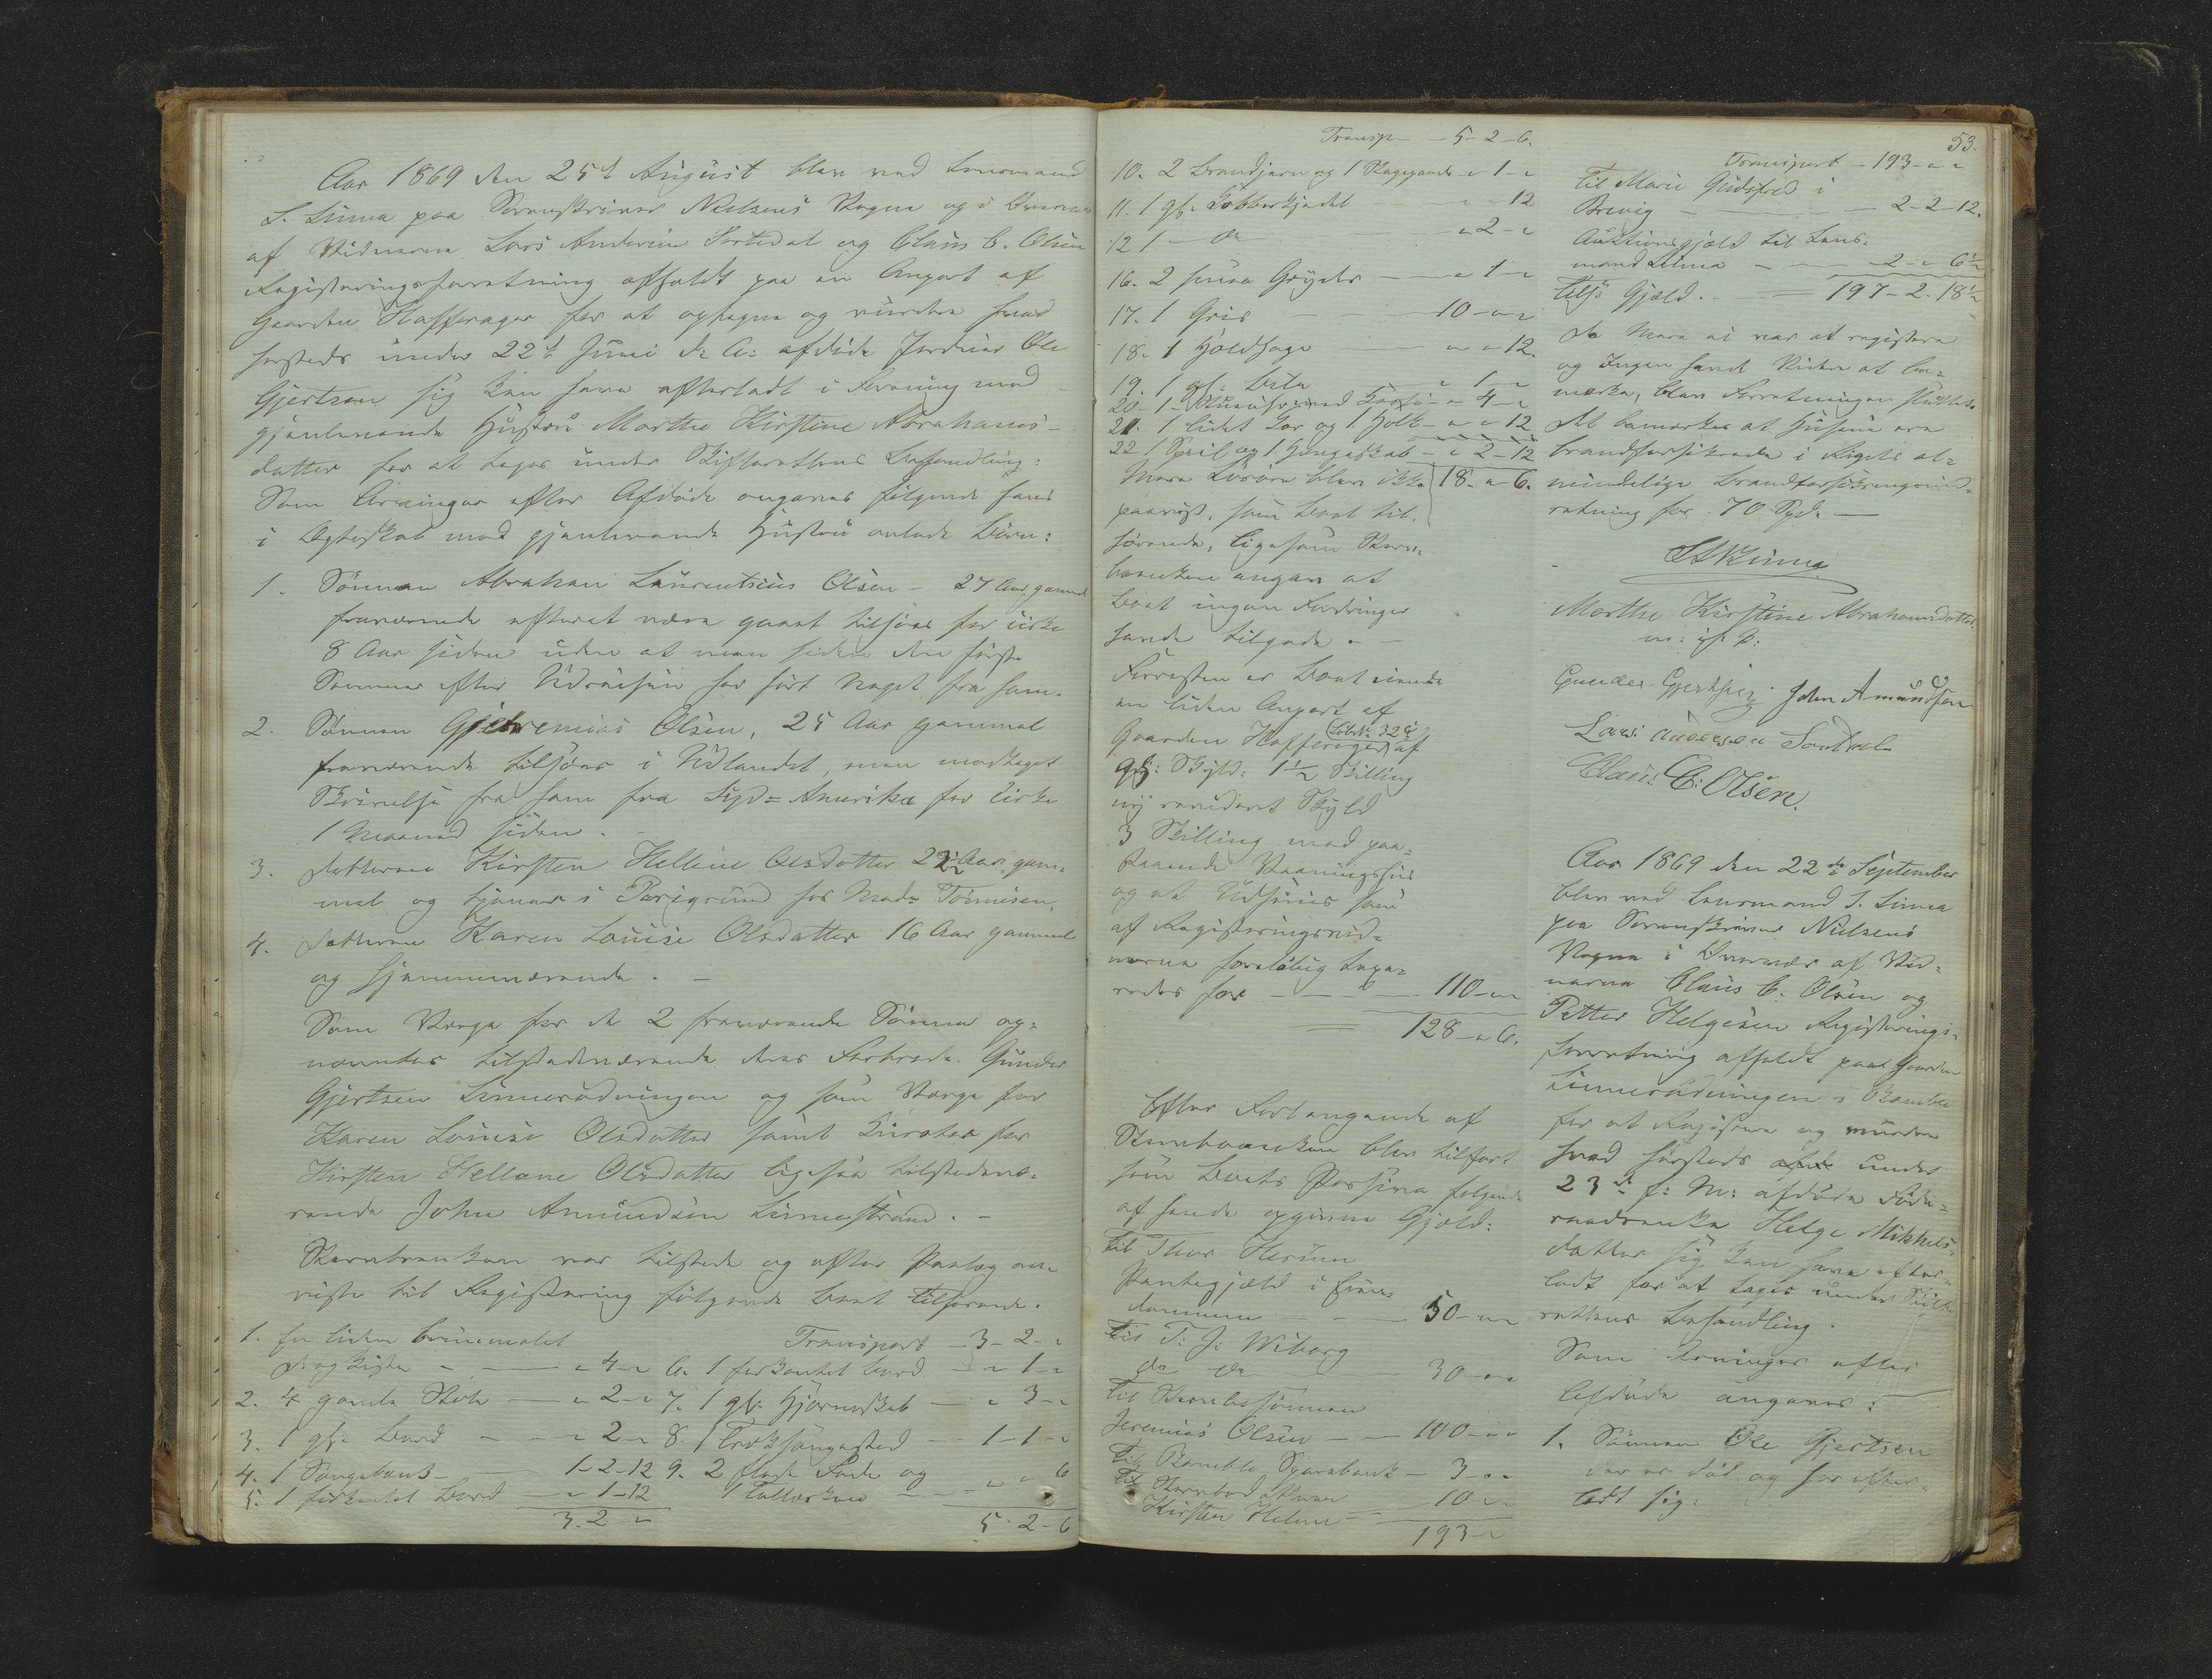 Aar 1869 den 25de August blev ved Lensmand
L. Linna paa Sorenskriver Nielsens Vegne og i Overvær
af Vidnerne Lars Andersen Sortedal og Claus C. Olsen
Registreringsforretning afholdt paa en Anpart af
Gaarden Hafsrager for at optegne og vurdere hvad
sammesteds under 22de Juni d: A: afdøde Jordeier Ole
Gjertsen sig kan have efterladt i Forening med
gjenlevende Hustru Marthe Kirstine Abrahams-
datter for at tages under Skifterettens Behandling:
Som Arvinger efter Afdøde angaves følgende hans
i Ægteskab med gjenlevende Hustru avlede Børn:
1. Sønnen Abraham Laurentsius Olsen - 27 Aar gammel
fraværende efterat være gaaet tilsjøs for cirka
8 Aar siden uden at man siden den første
Sommer efter Udreisen har hørt Noget fra ham.
2. Sønnen Jeremias Olsen, 25 Aar gammel
fraværende tilsjøes i Udlandet, men modtaget
Skrivelse fra ham fra Syd-Amerika for cirka
1 Maaned siden.
3. Datteren Kirsten Hellene Olsdatter 22½ Aar gam-
mel og tjener i Porsgrund hos Mad: Tønnisen,
4. Datteren Karen Louise Olsdatter 16 Aar gammel
og hjemmeværende. -
Som Værge for de 2 fraværende Sønner op-
nævntes tilstedeværende deres Farbrode. Gunder
Gjertsen Linnerødningen og som Værge for
Karen Louise Olsdatter samt Curator for
Kirsten Hellene Olsdatter ligesaa tilstedevæ-
rende John Amundsen Linnestrand. -
Stervbenken var tilstede og efter Paalæg an-
viste til Registrering følgende Boet tilhørende.
1. En liden brunmalet
Dragkiste - - 4 -
2. 4 gamle Stole - 2 -
3. 1 gl. Bord - - 2 -
4. 1 Sengebænk - 1 - 2 - 12
5. 1 firkantet Bord - 1 - 12
3. 2 -
Transport - 3 - 2 -
6. 1 firkantet Bord - 1 -
7. 1 gl. Hjørneskab - 3 -
8. 1 Træksengested - 1 - 1 -
9. 2 flade Fade og
1 Tallerken - - 6
5 - 2 - 6
Transp - 5 - 2 - 6.
10. 2 Brandjern og 1 Stegepande - 1 -
11. 1 gl. Kobberkjedel - - 12
12 1 - do - 2 -
16. 2 smaa Gryder - 1 -
17. 1 Gris - 10 -
18. 1 Holdsage - 12.
19. 1 gl. Bile - 1 -
20 - 1 - Stueuhr med Kasse - 4 -
21. 1 lidet Kar og 1 Holk - 12
22 1 Speil og 1 Hengeskab - 2 - 12
Mere Løsøre blev ikke 18. - 6.
paavist, som Boet til-
hørende, ligesom Sterv-
benken angav at
Boet ingen Fordringer
havde tilgode. -
Forresten er Boet eiende
en liden Anpart af
Gaarden Hafsrager (Løbe No. 328) af
gl: Skyld: 1½ Skilling
ny revideret Skyld
3 Skilling med paa-
staaende Vaaningshus
og et Udhuus som
af Registreringsvid-
nerne foreløbig taxe-
redes for - - - 110 -
128 - 6.
Efter Forlangende af
Stervbenken blev tilført
som Boets Passiva følgende
af hende opgivne Gjæld:
Til Thor Herøen
Pantegjæld i Eien-
dommen - - 50 -
Til T: J. Wiborg
do do - 30 -
Til Stervbosønnen
Jeremias Olsen - - 100 -
Til Bamble Sparebank - 3 -
Til Stervbodatteren
Kirsten Helene - 10 -
193 -
53.
Transport - 193 -
Til Marie Gudsfred i
Brevig - 2 - 2 - 12.
Auktionsgjæld til Lens-
mand Linna - 2 - 6½
Tils. Gjæld. - 197 - 2. 18½
Da Mere ei var at registrere
og Ingen havde Viden at be-
mærke, blev Forretningen sluttet.
Det bemærkes at Husene ere
brandforsikrede i Rigets al-
mindelige Brandforsikringsind-
retning for 70 Spd. -
S L Linna
Marthe Kirstine Abrahamsdatter
m: p: P:
Gunder Gjertsen John Amundsen
Lars Andersen Sortdal
Claus C. Olsen.
Aar 1869 den 22de September
blev ved Lensmand L. Linna
paa Sorenskriver Nielsens
Vegne i Overvær af Vid-
nerne Claus C. Olsen og
Petter Helgesen Registrerings-
forretning afholdt paa Gaarden
Linnerødningen i Bamble
for at Registrere og vurdere
hvad sammesteds under
23de f: M: afdøde Føde-
raadsenke Helge Mikkels-
datter sig kan have efter-
ladt for at tages under Skifte
rettens Behandling.
Som Arvinger efter
Afdøde angaves:
1. Sønnen Ole Gjertsen
der er død og har efter-
ladt sig: